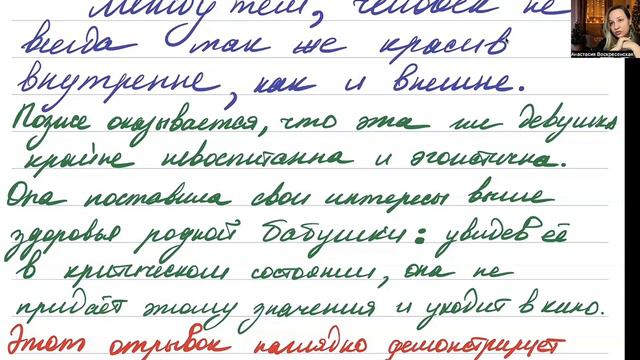 Между тем, человек не
всегда так же красив
внутренне, как и внешне.
Позже оказывается, что эта же девушка
крайне невоспитанна и эгоистична.
Она поставила свои интересы выше
здоровья родной бабушки: увидев её
в критическом состоянии, она не
придаёт этому значения и уходит в кино.
Этот отрывок наглядно демонстрирует
Анастасия Воскресенская